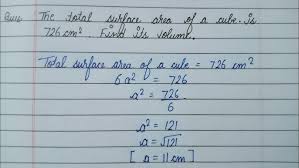 Ques The total surface area of a cube is
726 cm². Find its volume.
Total surface area of a cube = 726 cm²
6a² = 726
a² = 726/6
a² = 121
a = √121
[ a = 11 cm ]